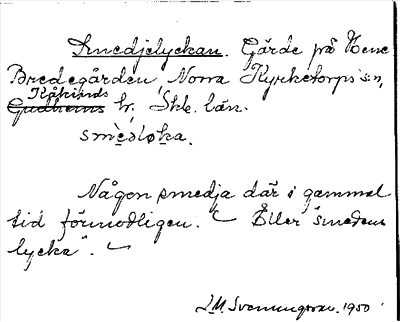 Smedjelyckan. Gärde på Hene
Bredegården, Norra Kyrketorps sn,
Kåkinds
Gudhems hr, Skbg. län.
smèdløka.
Någon smedja där i gammal
tid förmodligen. Eller "smedens
lycka".
J.M. Svenungsson. 1950